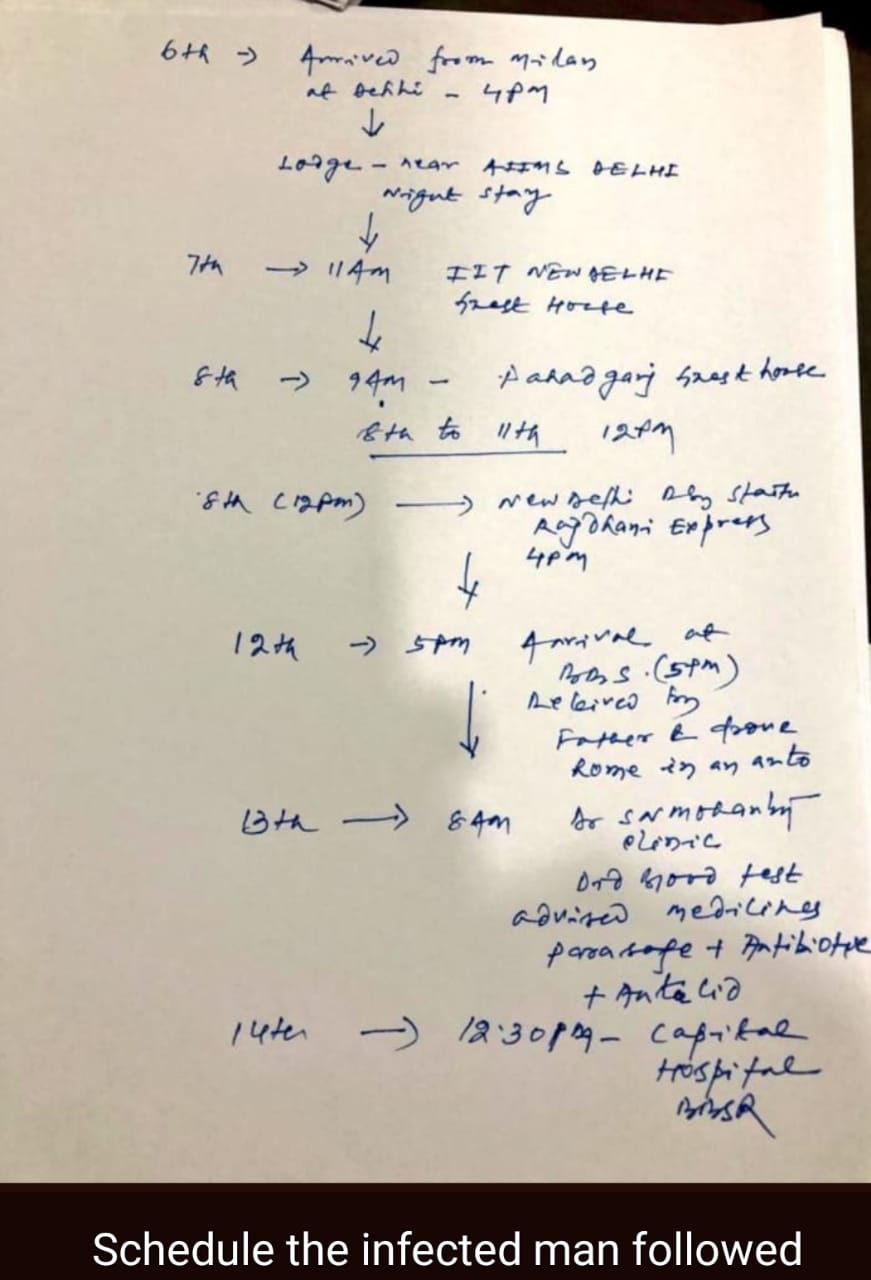 6th → Arrived from Milan
at Delhi - 4pm
↓
Lodge - near AIIMS DELHI
Night stay
↓
7th → 11 Am IIT NEW DELHI
Guest House
↓
8th → 9 Am - Pahadganj Guest house
8th to 11th 12pm
8th (12pm) → New Delhi Rly Statn
Rajdhani Express
4pm
↓
12th → 5pm Arrival at
BBS. (5pm)
Received by
Father & drove
Home in an auto
↓
13th → 8 Am Dr S N Mohanty
clinic
Did Blood test
advised medicines
parasafe + Antibiotic
+ Antacid
14th → 12:30 PM - Capital
Hospital
BBSR
Schedule the infected man followed